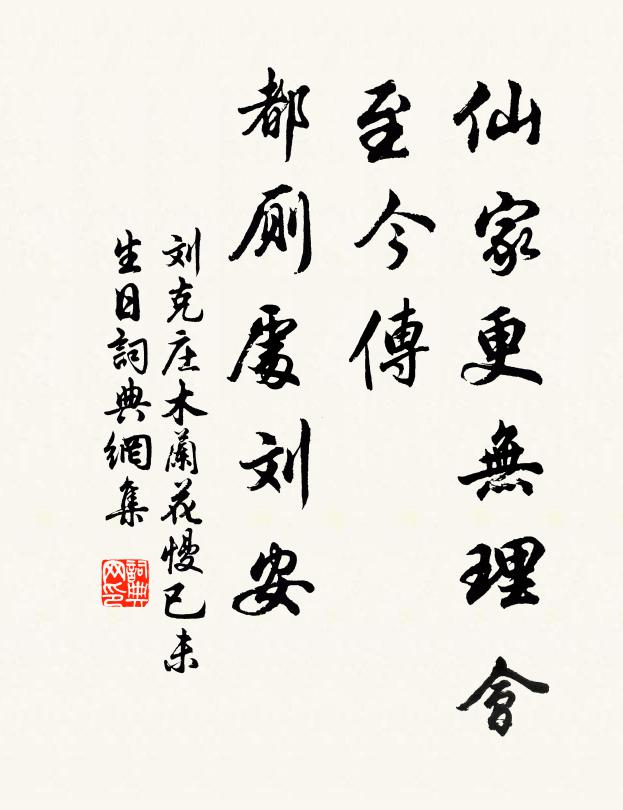 仙家更無理會
至今傳
都厠處刘安
刘克庄木蘭花慢已未
生日詞典網集
詞典网印